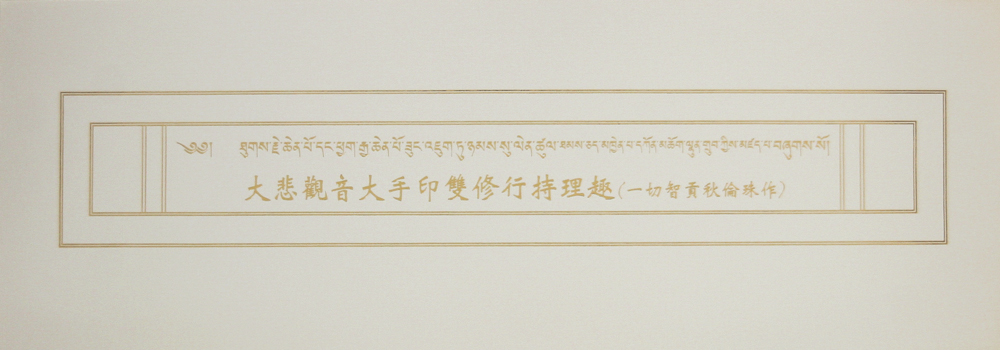 ༄༅། ཐུགས་རྗེ་ཆེན་པོ་དང་ཕྱག་རྒྱ་ཆེན་པོ་ཟུང་འཇུག་ཏུ་ཉམས་སུ་ལེན་ཚུལ་ཐམས་ཅད་མཁྱེན་པ་དཀོན་མཆོག་ལྷུན་གྲུབ་ཀྱིས་མཛད་པ་བཞུགས་སོ།
大悲觀音大手印雙修行持理趣(一切智貢秋倫珠作)